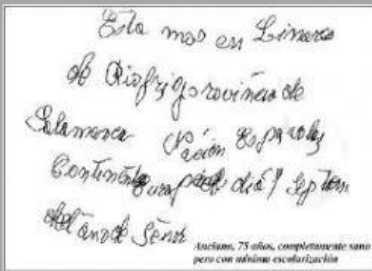 Esta mos en Linares
de Riofrio
Salamanca Nación Española
Continente dia 7 Septien
del Señor
Anciano, 75 años, completamente sano
pero con mínima escolarización